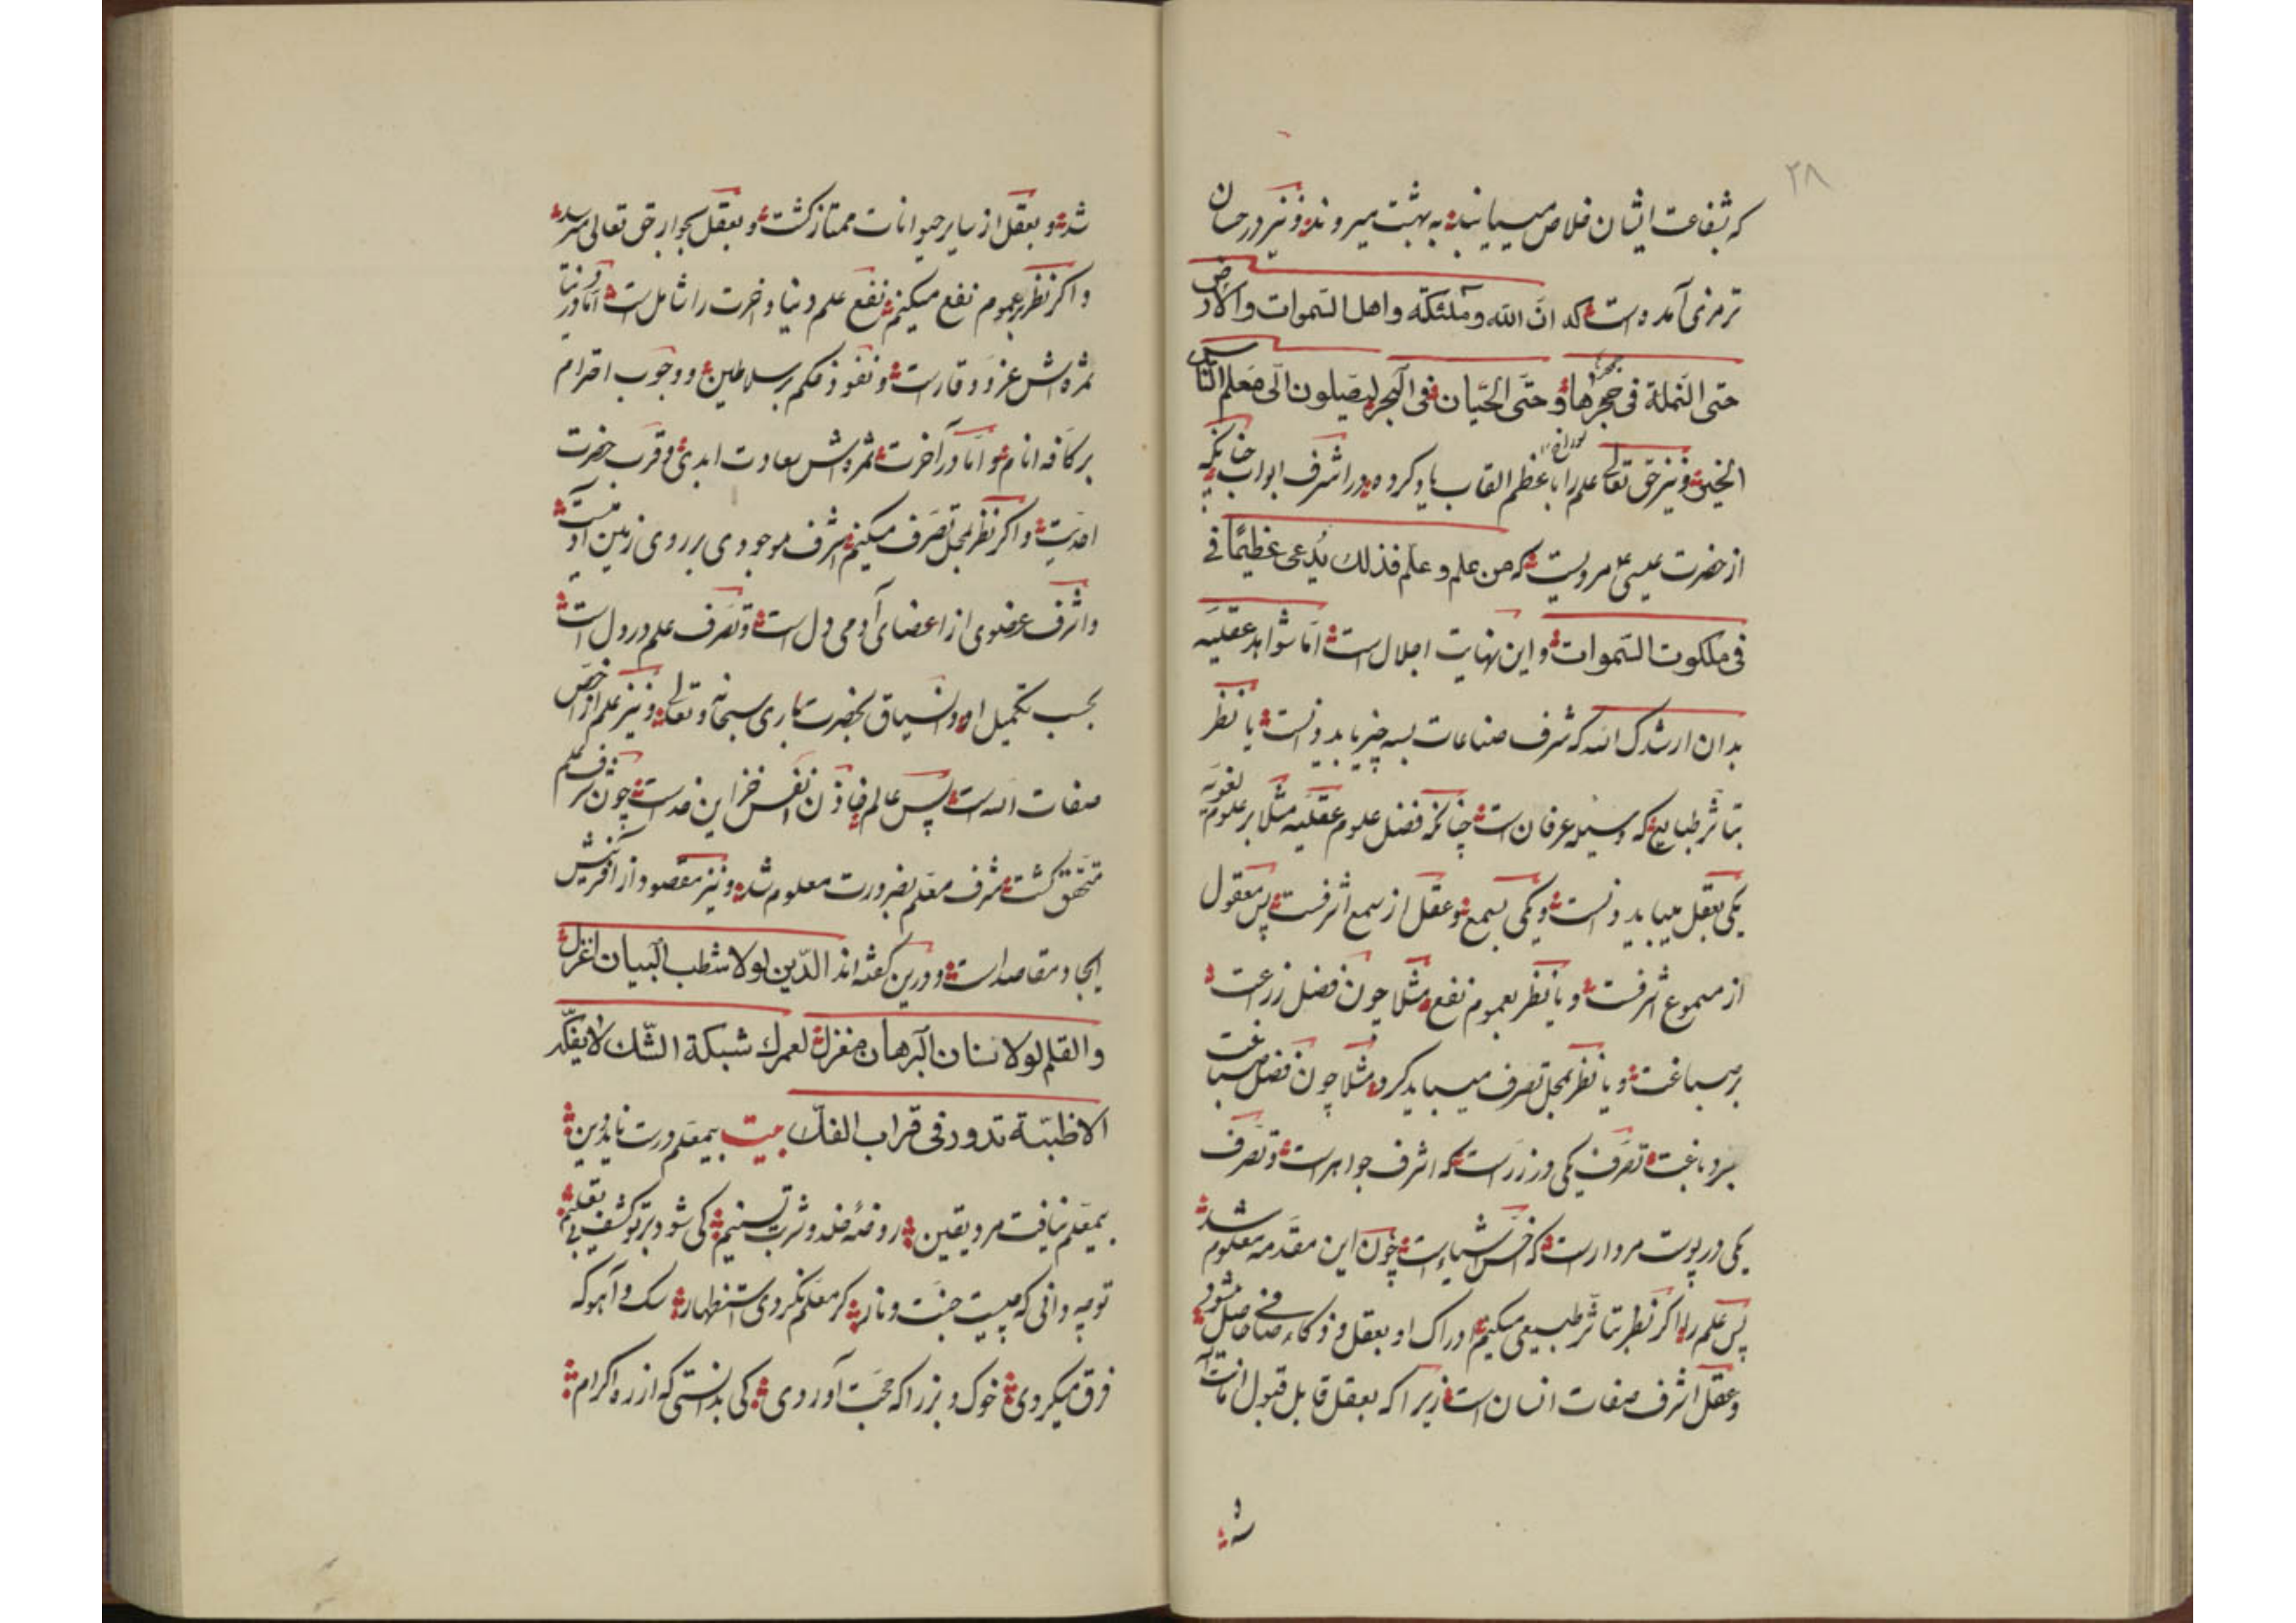 ۲۸
که بشفاعت ایشان خلاص میبیابند به بهشت میروند و نیز در حسان
ترمزی آمده است که انّ الله وملئکته واهل السّموات والارض
حتی النّملة فی جحرها وحتّی الحیتان فی البحر لیصلّون الی معلم النّاس
الخیر و نیز حق تعالی علم را باعظم القاب یاد کرده در اشرف ابواب چنانکه
از حضرت عیسی ع مرویست که من علم و علّم فذلك یُدعی عظیمًا فی
فی ملکوت السّموات و این نهایت اجلال است امّا شواهد عقلیّه
بدان ارشدک الله که شرف صناعات بسه چیز باید دانست یا نظر
بتاثر طبایع که وسیله عرفان است چنانکه فضل علوم عقلیّه مثلا بر علوم لغویّه
یکی بعقل میباید دانست و یکی بسمع و عقل از سمع اشرفست پس معقول
از مسموع اشرفست و یا نظر بعموم نفع مثلا چون فضل زرعت
بر صباغت و یا نظر بمحل تصرف میباید کرد مثلا چون فضل صباغت
بر دباغت تصرّف یکی در زرست که اشرف جواهر است و تصرّف
یکی در پوست مردارست که اخسّ اشیاء است چون این مقدّمه معلوم شد
پس علم را اگر نظر بتاثر طبیعی میکنیم ادراک او بعقل و ذکاء صافی حاصل میشود
و عقل اشرف صفات انسان است زیرا که بعقل قابل قبول امانت
شد و بعقل از سایر حیوانات ممتاز کشت و بعقل بجوار حق تعالی میرسد
و اکر نظر بعموم نفع میکنیم نفع علم دنیا و اخرت را شامل است امّا در دنیا
ثمره اش عزّ و وقارست و نفوذ حکم بر سلاطین و وجوب احترام
بر کافه انام و امّا در آخرت ثمره اش سعادت ابدی و قرب حضرت
احدیت و اکر نظر بمحل تصرّف میکنیم اشرف موجودی بر روی زمین آدمیست
و اشرف عضوی از اعضای آدمی دل است و تصرّف علم در دل است
بحسب تکمیل او و انسیاق بحضرت باری سبحانه و تعالی و نیز علم از اخصّ
صفات الله است پس عالم خازن انفس خزاین خداست چون شرف علم
متحقق کشت شرف معلم بضرورت معلوم شد و نیز مقصود از آفرینش
ایجاد مقاصد است و درین کفته اند الدّین لولا شطب البیان اغزل
والقلم لولا سنان البرهان مغزل لعمرك شبکة الشّك لایفکّ
الا ظبّة تدور فی قراب الفكّ بیت بیمعلم درست ناید دین
بیمعلم نیافت مرد یقین روضهٔ خلد و شرب تسنیم کی شود بر تو کشف بی تعلیم
تو چه دانی که چیست جنّت و نار کر معلم نکردی استظهار سک و آهو که
فرق میکردی خوک و بز را که حجّت آوردی کی بدانستی که از ره اکرام
شد